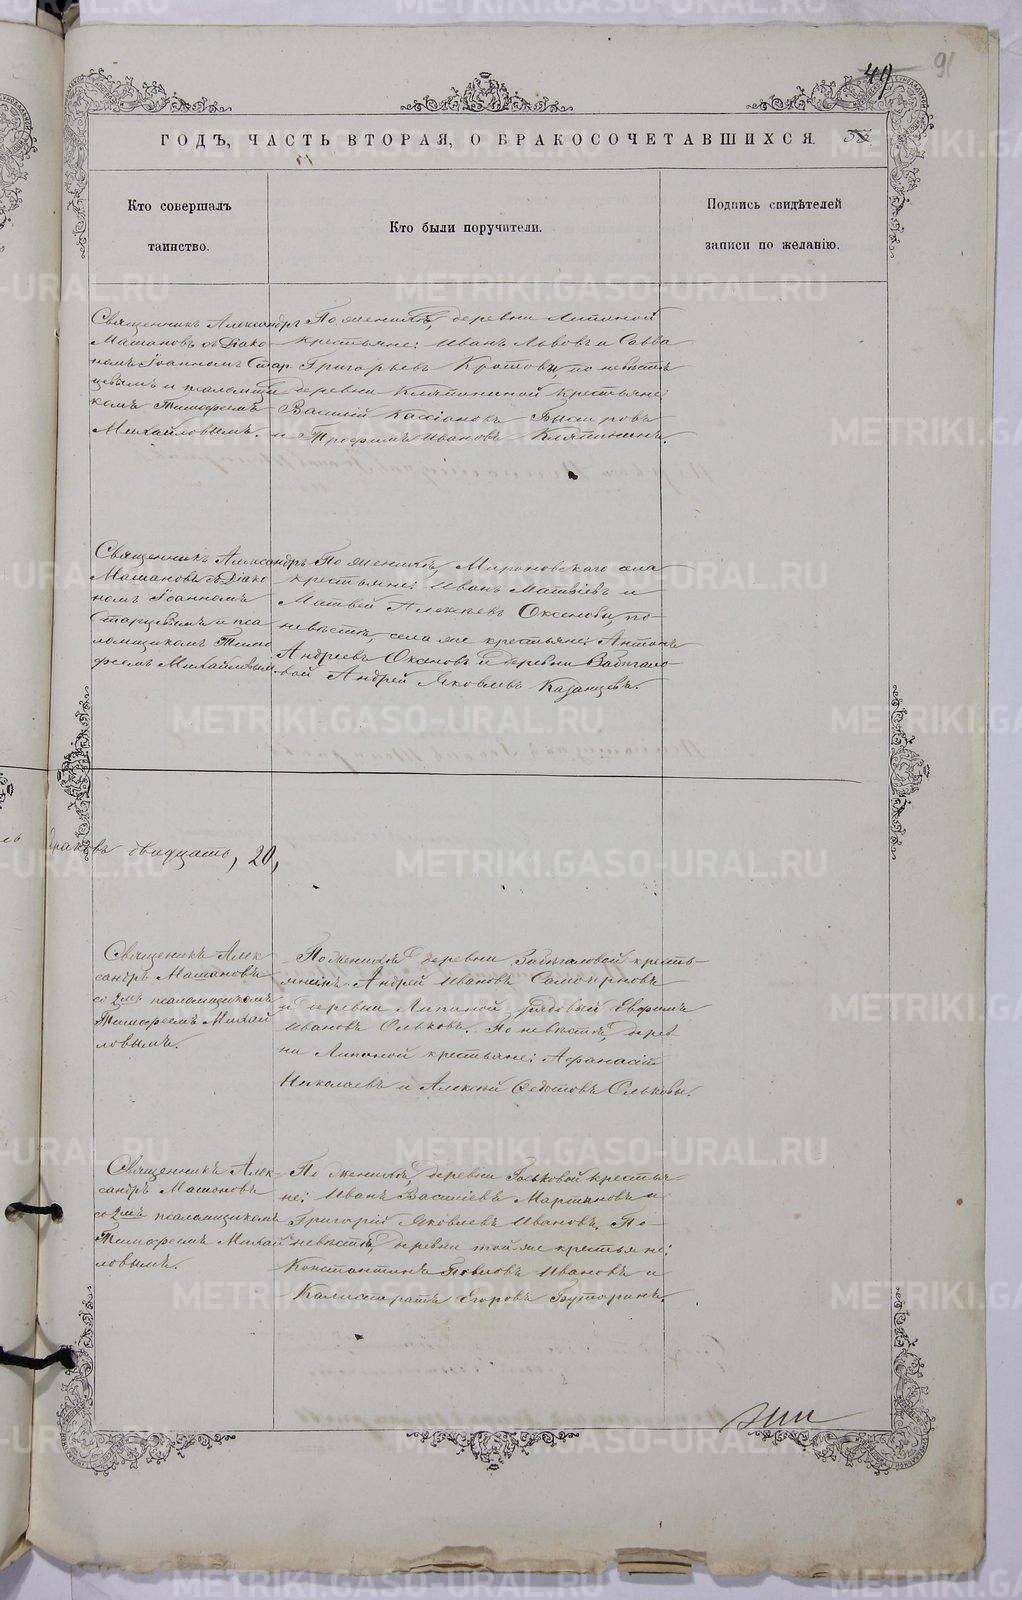 49
91
ГОДЪ, ЧАСТЬ ВТОРАЯ, О БРАКОСОЧЕТАВШИХСЯ.
Кто совершалъ
таинство.
Кто были поручители.
Подпись свидѣтелей
записи по желанію.
Священникъ Александръ
Машановъ съ Діако
номъ Іоанномъ Стар
цевымъ и псаломщи
комъ Тимофеемъ
Михайловымъ.
По женихѣ, деревни Липиной
крестьяне: Иванъ Львовъ и Савва
Григорьевъ Кротовы, по невѣстѣ
деревни Кляпиной крестьяне:
Василій Кассіановъ
и Трофимъ Ивановъ
Священникъ Александръ
Машановъ съ Діако
номъ Іоанномъ
Старцевымъ и пса
ломщикомъ Тимо
феемъ Михайловым
По женихѣ, Мироновскаго села
крестьяне: Иванъ Матвіевъ и
Матвей Алексѣевъ Оксеновы, по
невѣстѣ, села же крестьяне: Антонъ
Андреевъ Оксеновъ и деревни Забѣгало
вой Андрей Яковлевъ Казанцевъ.
браковъ двадцать, 20,
Священикъ Алек
сандръ Машановъ
со 2мъ псаломщикомъ
Тимофеемъ Михай
ловымъ.
По женихѣ деревни Забѣгаловой кресть-
янинъ Андрей Ивановъ
и деревни Липиной, рядовый Евфимъ
Ивановъ Ольковъ. По невѣстѣ, дерев
ни Липиной крестьяне: Афанасій
Николаевъ и Алексѣй Ѳедотовъ Ольковы.
Священникъ Алек-
сандръ Машановъ
со 2мъ псаломщикомъ
Тимофеемъ Михай
ловымъ.
По женихѣ, деревни крестья-
не: Иванъ Василіевъ Мартыновъ и
Григорій Яковлевъ Ивановъ. По
невѣстѣ, деревни той-же крестьяне:
Константинъ Павловъ Ивановъ и
Калистратъ Егоровъ Бутаринъ.
METRIKI.GASO-URAL.RU